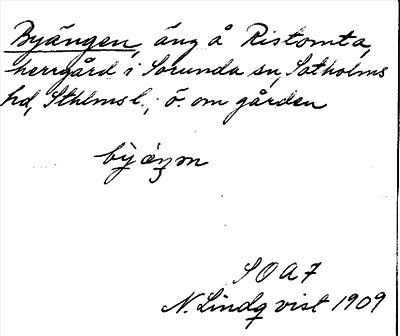 Byängen, äng å Ristomta,
herrgård i Sorunda sn, Sotholms
hd, Sthlms l.; ö. om gården
SOA 7
N. Lindqvist 1909